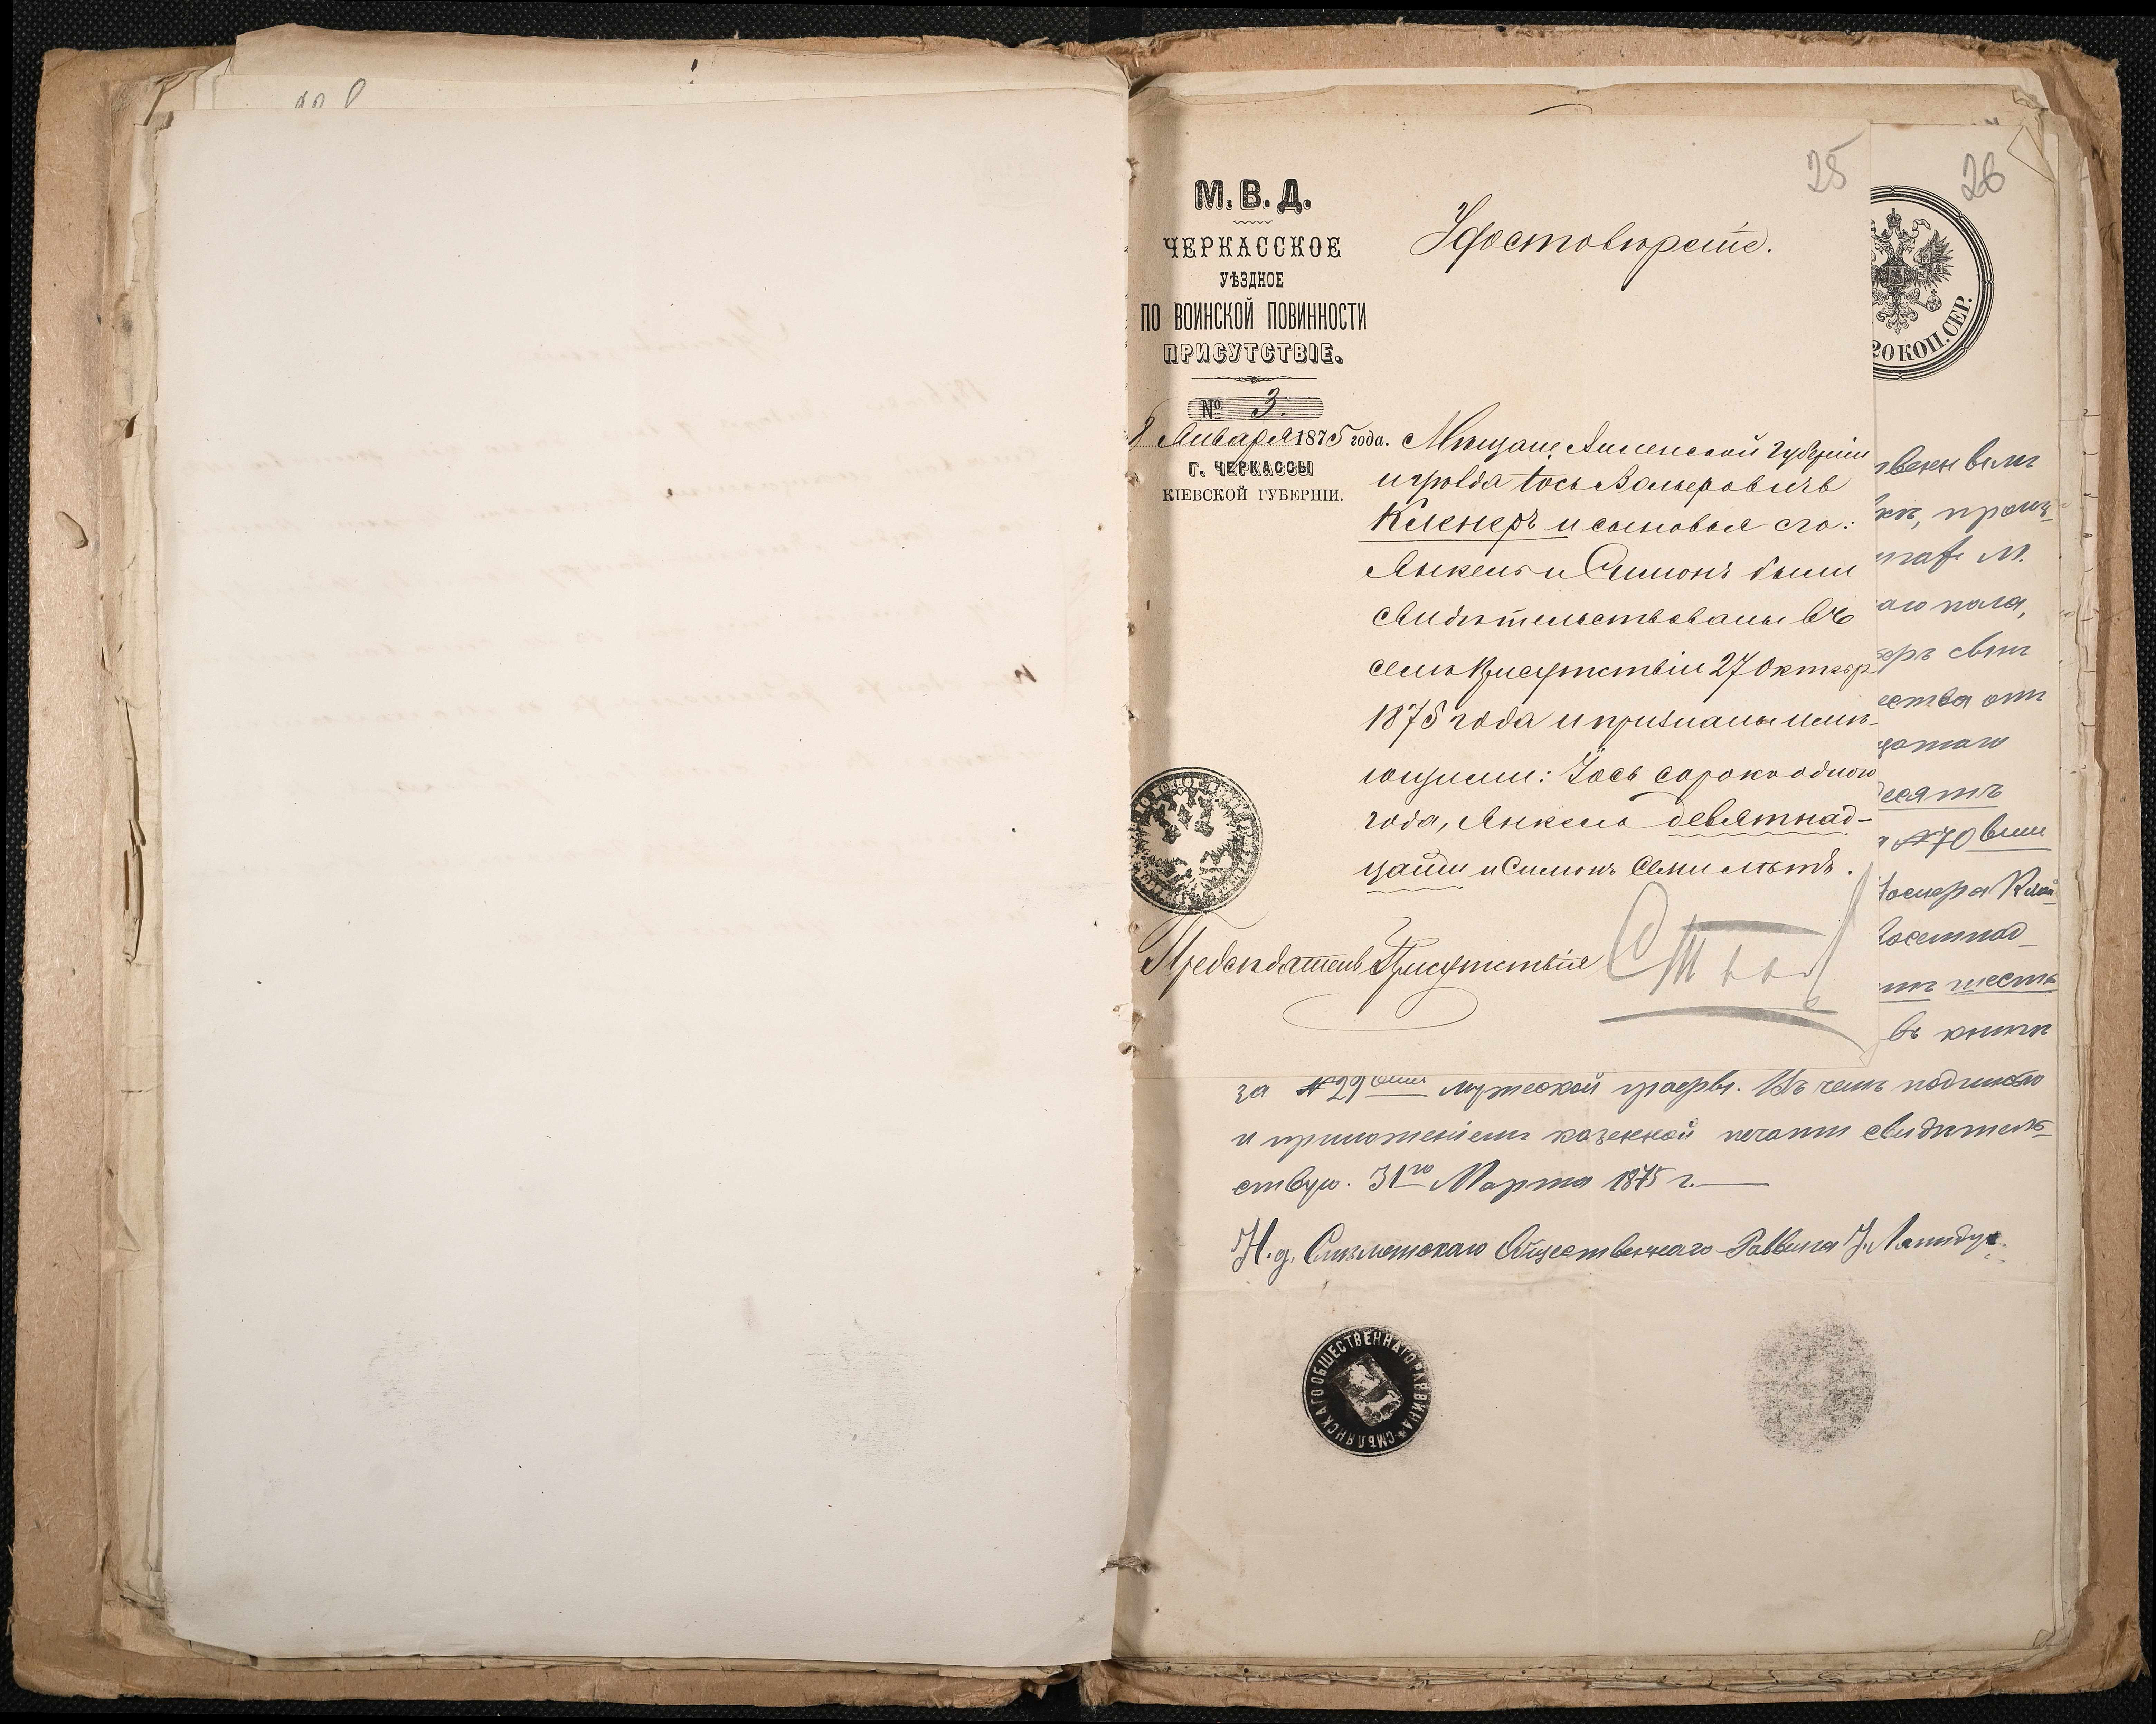 25
26
М. В. Д.
ЧЕРКАССКОЕ
УѢЗДНОЕ
ПО ВОИНСКОЙ ПОВИННОСТИ
ПРИСУТСТВІЕ.
№ 3.
8 Января 1875 года.
Г. ЧЕРКАССЫ
КІЕВСКОЙ ГУБЕРНІИ.
Удостовѣреніе.
Мѣщане губерніи
Іось
Кленеръ и сыновья его:
Янкель и Симонъ были
свидѣтельствованы въ
семъ Присутствіи 27 Октябр
1875 года и признаны имѣ-
ющими: Іось сорока одного
года, Янкель девятнад-
цати и Симонъ Семи лѣтъ.
Предсѣдатель Присутствія
20 КОП. СЕР.
твеннымъ
произ
М.
аго пола,
ества отъ
цатаго
десять
№ 70
Іосиера Клей
Восемнад
шесть
въ книгѣ
за № 29 мужеской графы. Въ чемъ подписью
и приложеніемъ казенной печати свидѣтель-
ствую. 31го Марта 1875 г.
И. д. Смѣлянскаго Общественнаго Раввина Лапидус
СМѢЛЯНСКАГО ОБЩЕСТВЕННАГО РАВВИНА